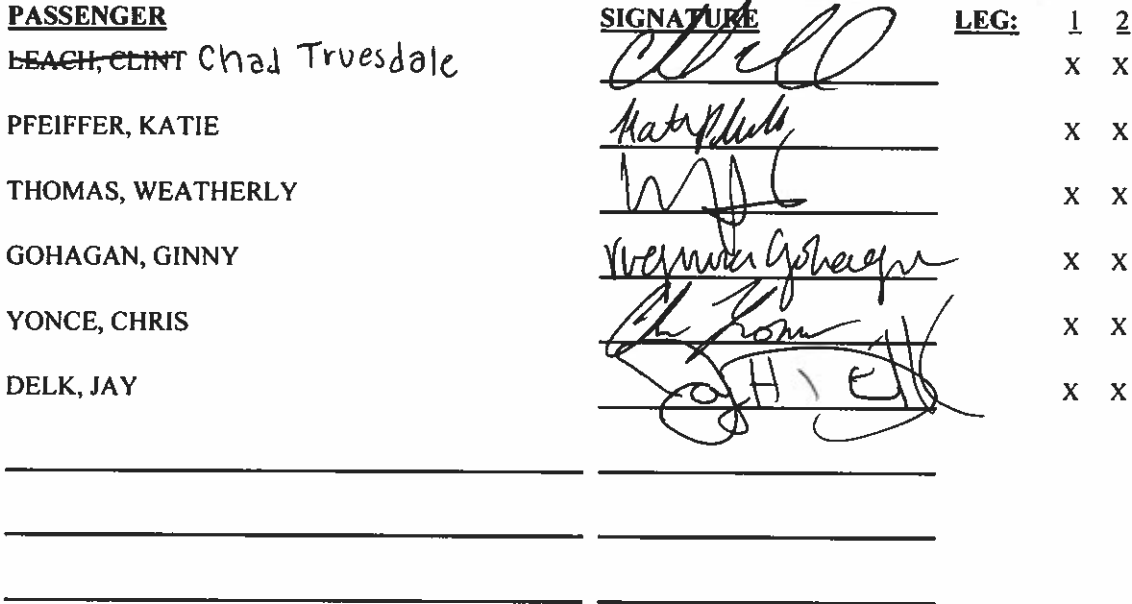 PASSENGER SIGNATURE LEG: 1 2
LEACH, CLINT Chad Truesdale X X
PFEIFFER, KATIE X X
THOMAS, WEATHERLY X X
GOHAGAN, GINNY Virginia Gohagan X X
YONCE, CHRIS X X
DELK, JAY X X